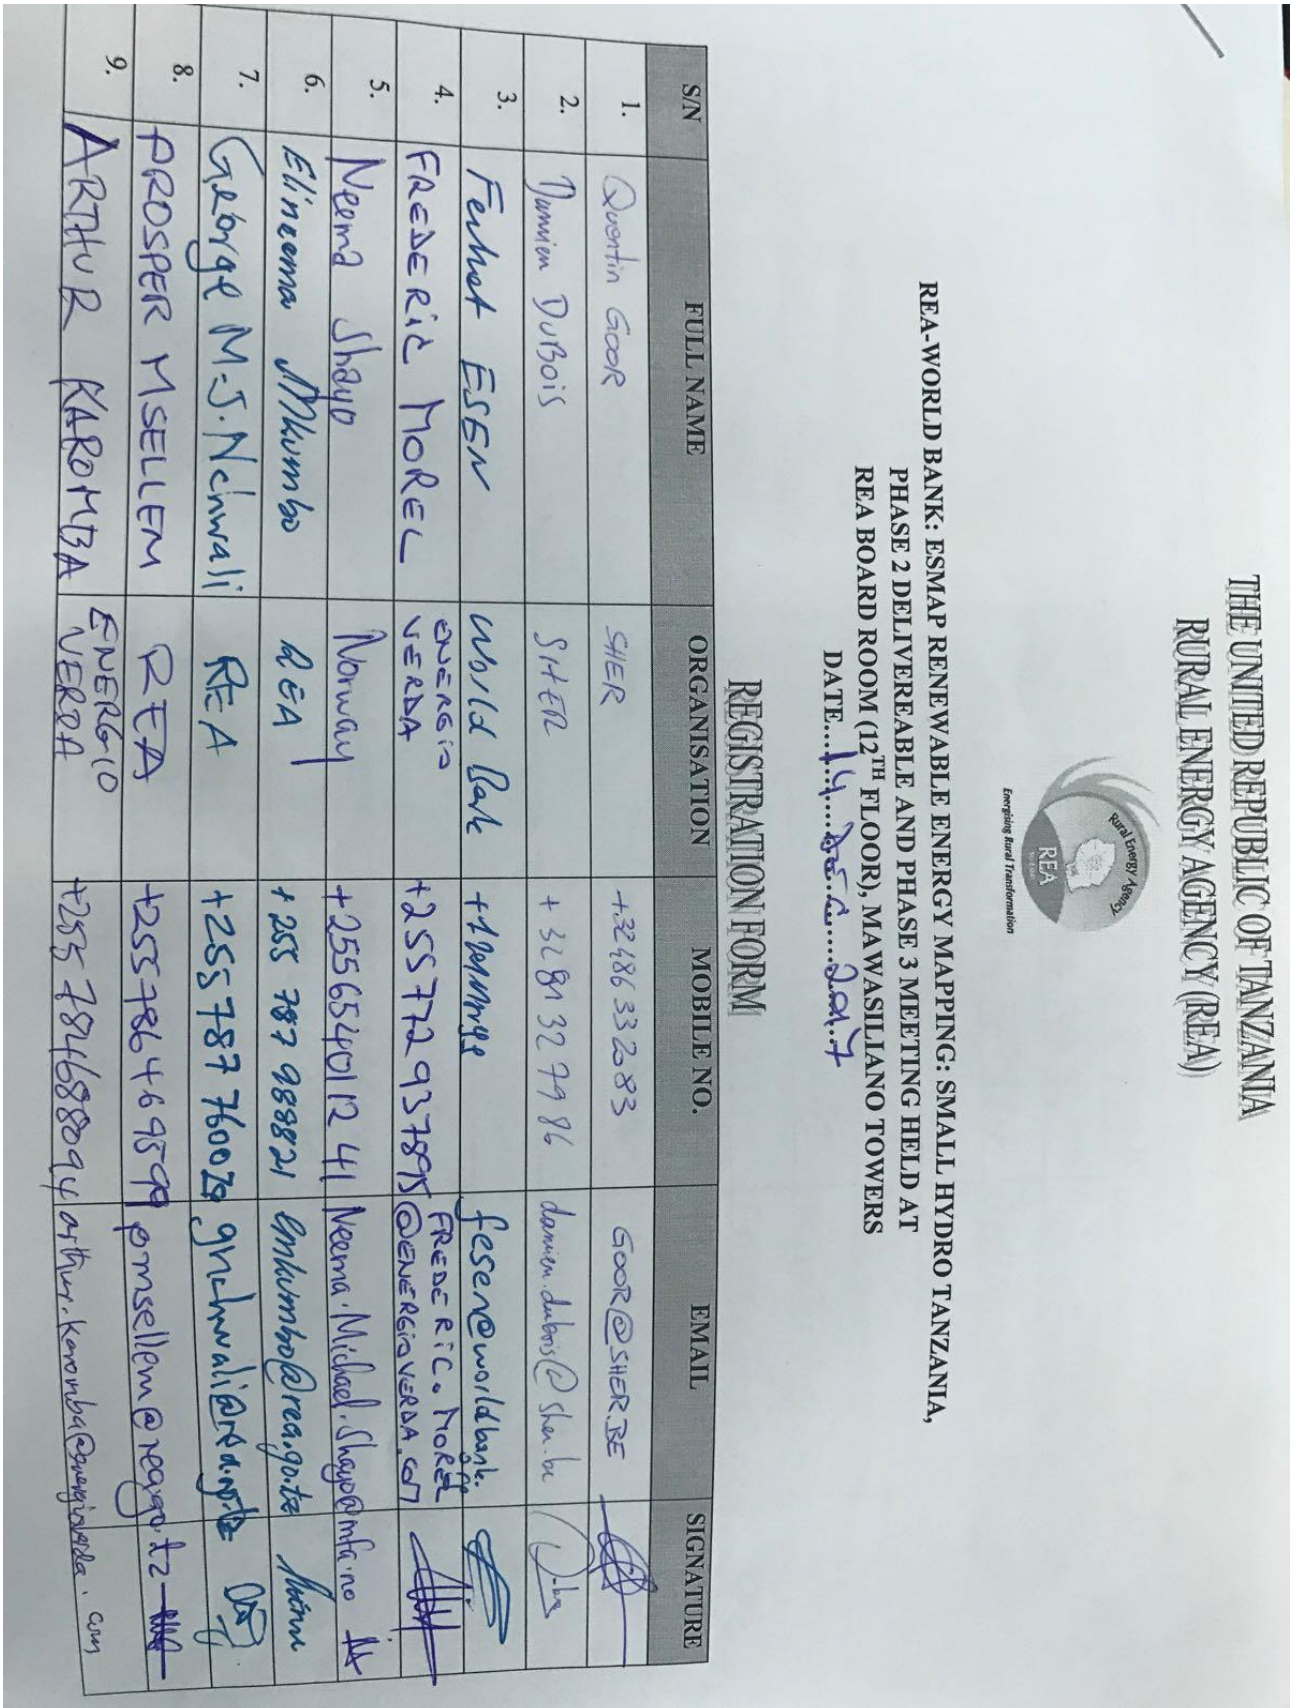 THE UNITED REPUBLIC OF TANZANIA
RURAL ENERGY AGENCY (REA)
Rural Energy Agency
REA
Energising Rural Transformation
REA-WORLD BANK: ESMAP RENEWABLE ENERGY MAPPING: SMALL HYDRO TANZANIA,
PHASE 2 DELIVEREABLE AND PHASE 3 MEETING HELD AT
REA BOARD ROOM (12TH FLOOR), MAWASILIANO TOWERS
DATE....14.......2017
REGISTRATION FORM
S/N FULL NAME ORGANISATION MOBILE NO. EMAIL SIGNATURE
1. Quentin GOOR SHER +32486332083 GOOR@SHER.BE
2. Damien DUBOIS SHER +3281327986 damien.dubois@sher.be
3. Ferhat ESEN World Bank fesen@worldbank.org
4. FREDERIC MOREL ENERGIO VERDA +255772937895 FREDERIC.MOREL@ENERGIOVERDA.COM
5. Neema Shayo Norway +255654011241 Neema.Michael.Shayo@mfa.no
6. Elineema Mkumbo REA +255 787 988821 emkumbo@rea.go.tz
7. George M.J. Nchwali REA gnchwali@rea.go.tz
8. PROSPER MSELLEM REA pmsellem@rea.go.tz
9. ARTHUR KAROMBA ENERGIO VERDA +255 784688094 arthur.karomba@energioverda.com